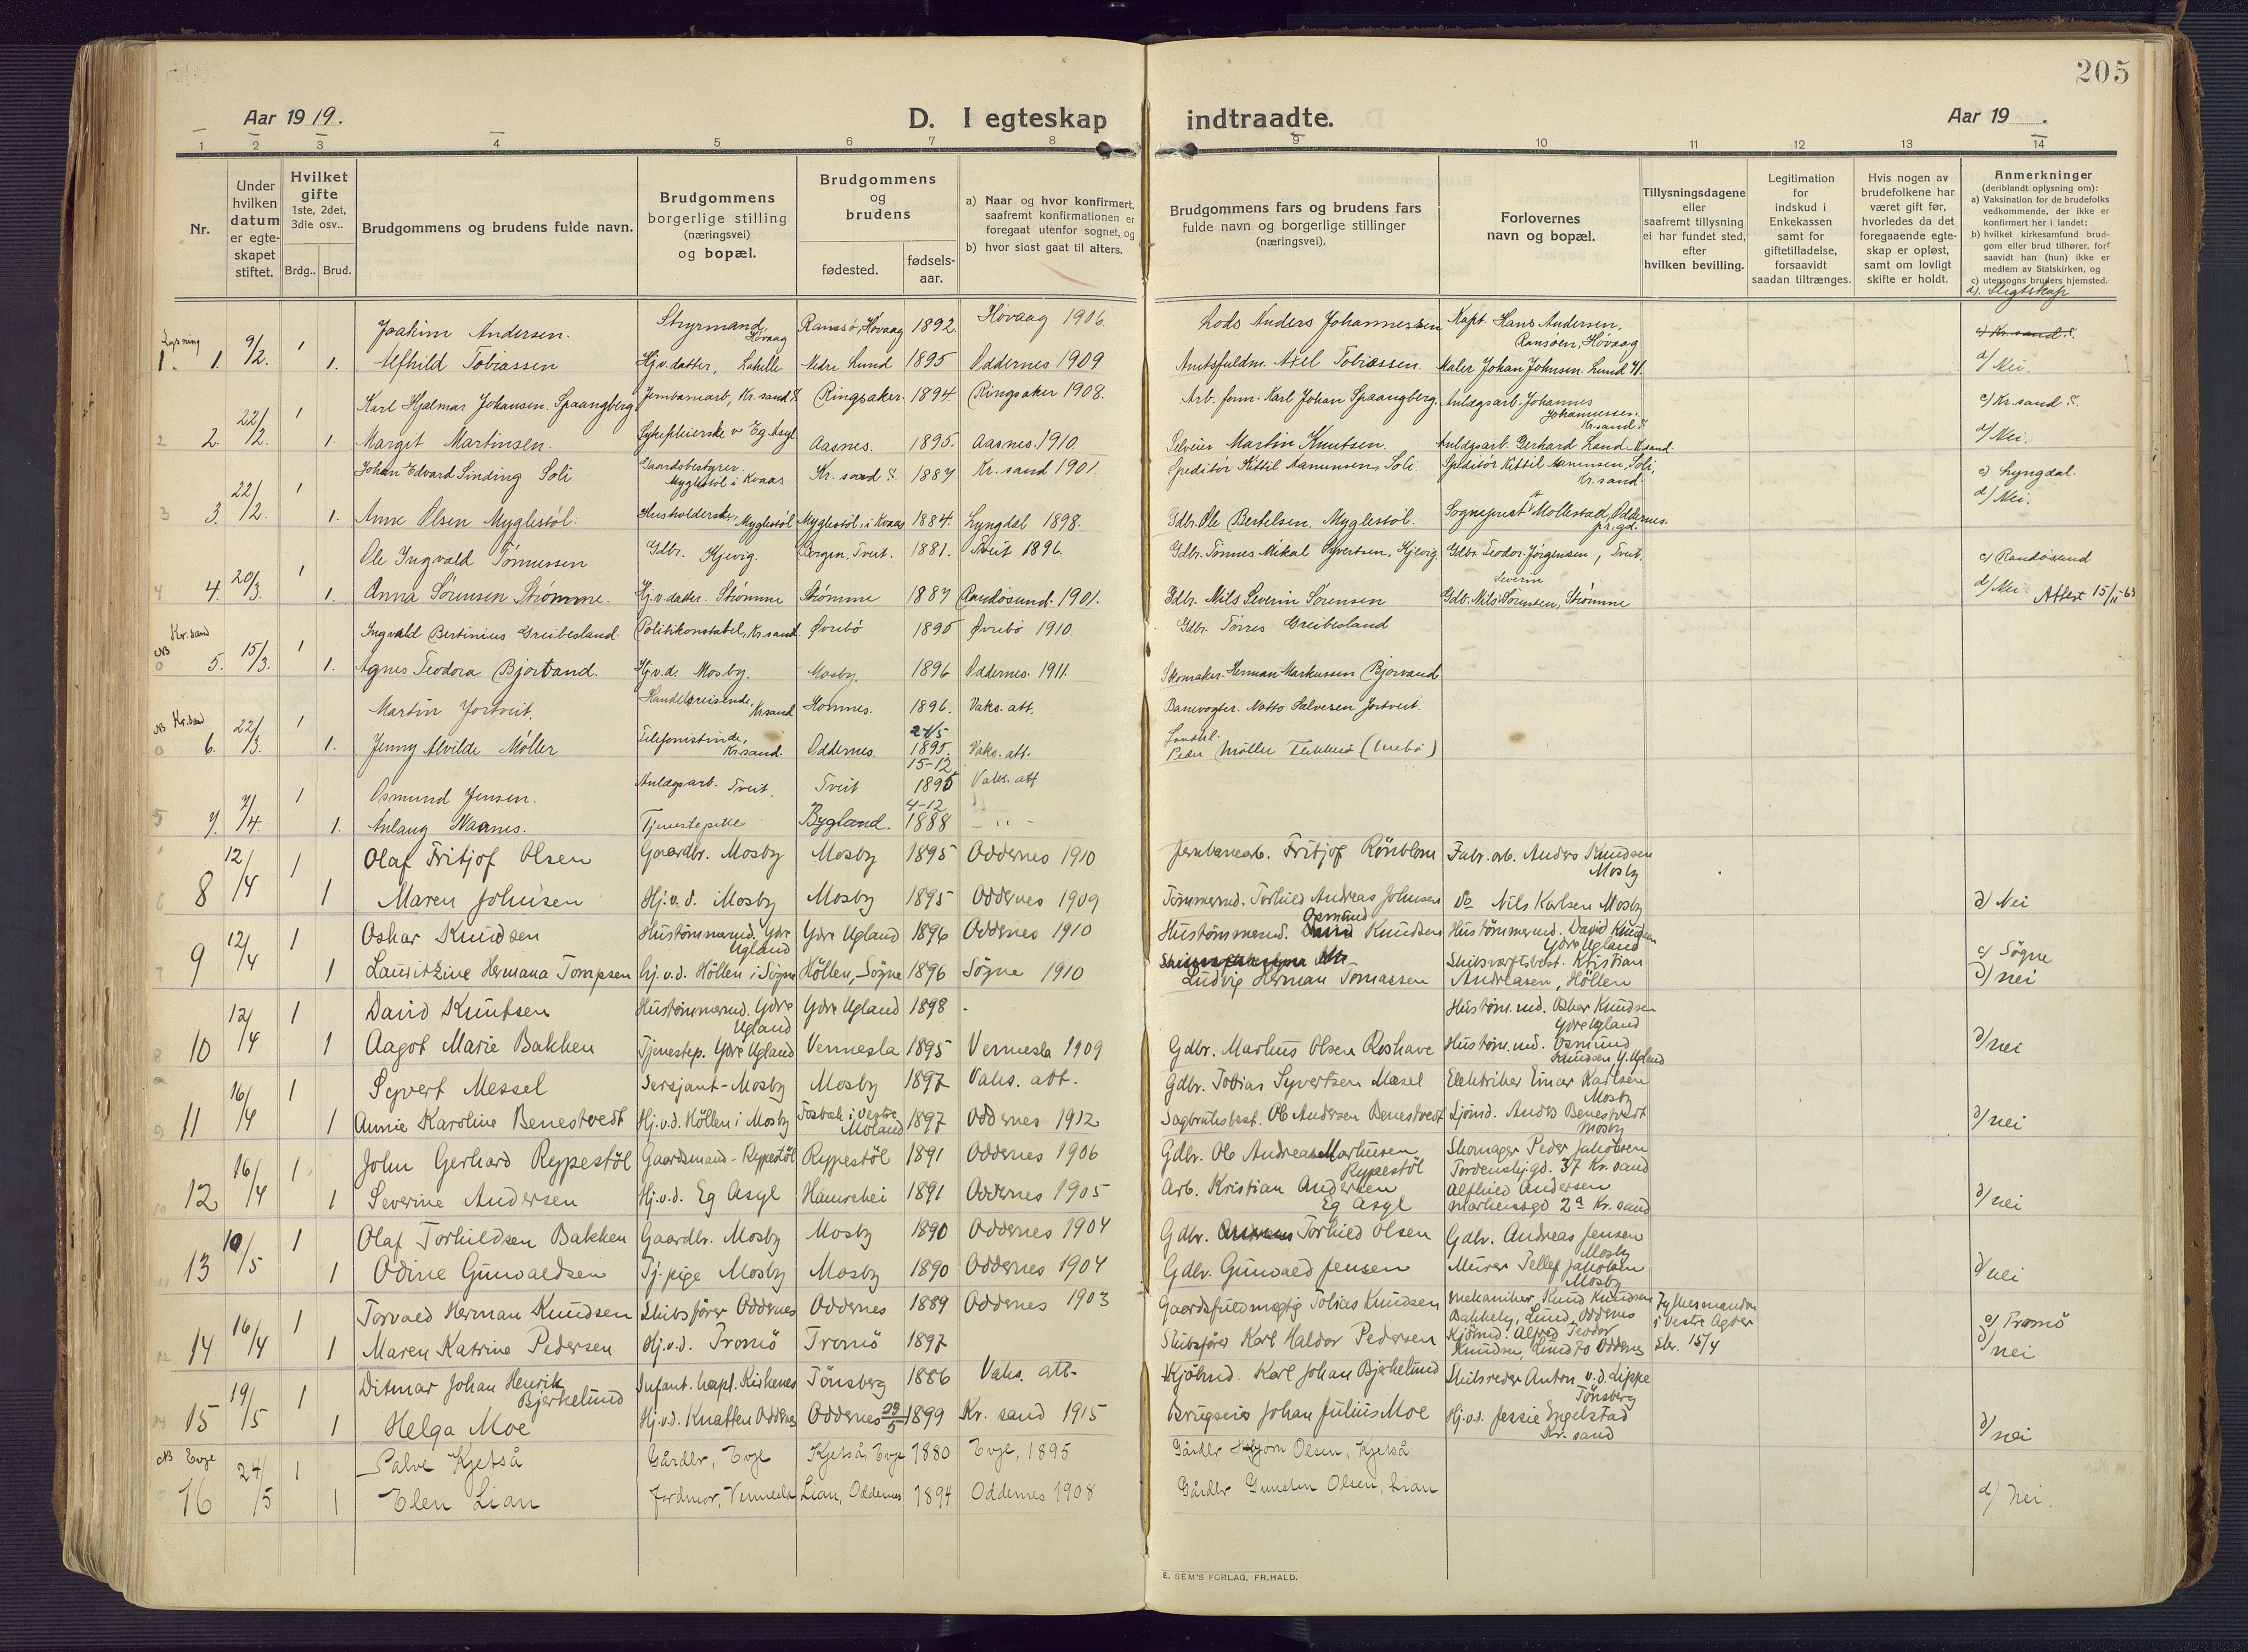 205
Aar 1919.
D. I egteskap indtraadte.
Aar 19 .
1 2 3 4 5 6 7 8 9 10 11 12 13 14
Nr.
Under hvilken datum er egteskapet stiftet.
Hvilket gifte 1ste, 2det, 3die osv..
Brdg.. Brud.
Brudgommens og brudens fulde navn.
Brudgommens borgerlige stilling (næringsvei) og bopæl.
Brudgommens og brudens
fødested. fødsels-aar.
a) Naar og hvor konfirmert, saafremt konfirmationen er foregaat utenfor sognet, og
b) hvor sidst gaat til alters.
Brudgommens fars og brudens fars fulde navn og borgerlige stillinger (næringsvei).
Forlovernes navn og bopæl.
Tillysningsdagene eller saafremt tillysning ei har fundet sted, efter hvilken bevilling.
Legitimation for indskud i Enkekassen samt for giftetilladelse, forsaavidt saadan tiltrænges.
Hvis nogen av brudefolkene har været gift før, hvorledes da det foregaaende egteskap er opløst, samt om lovligt skifte er holdt.
Anmerkninger (deriblandt oplysning om):
a) Vaksination for de brudefolks vedkommende, der ikke er konfirmert her i landet;
b) hvilket kirkesamfund brudgom eller brud tilhører, forsaavidt han (hun) ikke er medlem av Statskirken, og
c) utensogns bruders hjemsted.
d). Slegtskap
Lysning
1. 1. 9/2. 1 Joakim Andersen. Styrmand, Hövaag Ransö, Hövaag 1892. Hövaag 1906. Lods Anders Johannessen Kapt. Hans Andersen, Ransöen, Hövaag c) Kr.sand S.
1. Alfhild Tobiassen Hj.v.datter, Nedre Lund 1895 Oddernes 1909 Amtsfuldm. Axel Tobiassen. Maler Johan Johnsen. Lund d/ Nei.
2. 22/2. 1 Karl Hjalmar Johansen Spaangberg Jernbanearb, Kr.sand S. Ringsaker. 1894. Ringsaker 1908. Arb. form. Karl Johan Spaangberg. Anlægsarb. Johannes Johannessen. Kr.sand S c/ Kr.sand S.
1. Margit Martinsen. Sykepleierske v Eg Asyl Aasnes. 1895. Aasnes. 1910 Selveier Martin Knutsen. Anlægsarb. Gerhard Lund. Kr.sand. d/ Nei.
3. 22/2. 1 Johan Edvard Sinding Soli Gaardsbestyrer. Myglestöl i Kvaas Kr. sand S. 1887 Kr. sand 1901. Speditör Kittil Aanunsen, Soli. Speditör Kittil Aanunsen, Soli, Kr.sand. c) Lyngdal.
1. Anne Olsen Myglestöl. Husholderske, Myglestöl Myglestöl, i Kvaas 1884. Lyngdal 1898. Gdbr. Ole Bertelsen. Myglestöl. Sogneprest Mollestad, Oddernes. pr.gd. d/ Nei.
4. 20/3. 1 Ole Ingvald Tönnessen Gdbr. Kjevig. Borgen, Tveit. 1881. Tveit 1896. Gdbr. Tönnes Mikal Syvertsen, Kjevig. Gdbr Teodor Jörgensen, Tveit. c/ Randösund
1. Anna Sörensen Strömme. Hj.v.datter. Strömme Strömme 1887 Randösund. 1901. Gdbr. Nils Severin Sörensen Gdb. Nils Severin Sörensen, Strömme d/ Nei. Attest 15/11-63
NB Kr.sand
5. 15/3. 1 Ingvald Bertinius Greibesland. Politikonstabel, Kr.sand. Övrebö 1895 Övrebö 1910. Gdbr. Törres Greibesland
1. Agnes Teodora Bjorvand. Hj.v.d. Mosby. Mosby. 1896 Oddernes. 1911. Skomaker. Herman Markussen Bjorvand
NB Kr.sand
6. 22/3. 1 Martin Jortveit. Handelsreisende, Kr.sand Hornnes. 1896. Vaks. att. Banevogter. Notto Salvesen Jortveit.
1. Jenny Alvilde Möller Telefonistinde, Kr.sand. Oddernes. 24/5 1895. Vaks. att. Peder Möller
7. 7/4. 1 Osmund Jensen. Anlægsarb. Tveit. Tveit 15-12 1895 Vaks. att
1. Anlaug Naanes. Tjenestepike Bygland. 4-12 1888 — " —
8 12/4 1 Olaf Fritjof Olsen Gaardbr. Mosby Mosby 1895 Oddernes 1910 Jernbanearb. Fritjof Rönblom Fabr. arb. Anders Knudsen Mosby
1 Maren Johnsen Hj.v.d. Mosby Mosby 1895 Oddernes 1909 Tömmermd. Torkild Andreas Johnsen Do Nils Karlsen Mosby d/ Nei
9 12/4 1 Oskar Knudsen Hustömmermd. Ydre Ugland Ydre Ugland 1896 Oddernes 1910 Hustömmermd. Osmund Knudsen Hustömmermd. David Knudsen Ydre Ugland c/ Sögne
1 Lauritzine Hermana Tompsen Hj.v.d. Höllen i Sögne Höllen, Sögne 1896 Sögne 1910 Ludvig Herman Tomassen Skibsværftsbest. Kristian Andreasen, Höllen d/ nei
10 12/4 1 David Knutsen Hustömmermd. Ydre Ugland Ydre Ugland 1898 - Hustöm.md. Oskar Knudsen Ydre Ugland
1 Aagot Marie Bakken Tjenestep. Ydre Ugland Vennesla 1895 Vennesla 1909 Gdbr. Markus Olsen Röshave Hustöm.md. Osmund Knudsen Y. Ugland d/ nei
11 16/4 1 Syvert Messel Sersjant-Mosby Mosby 1897 Vaks. att. Gdbr. Tobias Syvertsen Mæsel Elektriker Einar Karlsen Mosby
1 Annie Karoline Benestvedt Hj.v.d. Höllen i Mosby Fosbæk i Vestre Moland 1897 Oddernes 1912 Sagbruksbest. Ole Andersen Benestvedt Sjömd. Anders Benestvedt Mosby d/ nei
12 16/4 1 John Gerhard Rypestöl Gaardmand-Rypestöl Rypestöl 1891 Oddernes 1906 Gdbr. Ole Andreas Markussen Rypestöl Skomager Peder Jakobsen Tordenskj.gd. 37 Kr.sand
1 Severine Andersen Hj.v.d. Eg Asyl Hamrehei 1891 Oddernes 1905 Arb. Kristian Andersen Eg Asyl Alfhild Andersen Markensgd 2a Kr.sand d/ nei
13 10/5 1 Olaf Torkildsen Bakken Gaardbr. Mosby Mosby 1890 Oddernes 1904 Gdbr. Torkild Olsen Gdbr. Andreas Jensen Mosby
1 Odine Gunvaldsen Tj.pige Mosby Mosby 1890 Oddernes 1904 Gdbr. Gunvald Jensen Murer Tellef Jakobsen Mosby d/ nei
14 16/4 1 Torvald Herman Knudsen Skibsförer Oddernes Oddernes 1889 Oddernes 1903 Gaardsfuldmægtig Tobias Knudsen Mekaniker Knud Knudsen Bakkely, Lund, Oddernes Fylkesmanden i Vestre Agder skr. 15/4 c/ Tromö
1 Maren Katrine Pedersen Hj.v.d. Tromö Tromö 1897 Skibsförer Karl Haldor Pedersen Kjömd. Alfred Teodor Knudsen, Lund Oddernes d/ nei
15 19/5 1 Ditmar Johan Henrik Bjerkelund Infant. kapt. Kirkenes Tönsberg 1886 Vaks. att. Kjöbmd. Karl Johan Bjerkelund Skibsreder Anton v.d. Lippe Tönsberg
1 Helga Moe Hj.v.d. Knatten Oddernes Oddernes 29/5 1899 Kr. sand 1915 Brugseier Johan Julius Moe Hj.v.d. Jessie Engelstad Kr. sand d/ nei
NB Evje
16 24/5 1 Salve Kjetså Gårdbr, Evje Kjetså, Evje 1880 Evje, 1895 Gårdbr Olsen, Kjetså
1 Elen Lian Jordmor, Vennesla Lian, Oddernes 1894 Oddernes 1908 Gårdbr Olsen, Lian d/ Nei.
E. SEM'S FORLAG, FR.HALD.